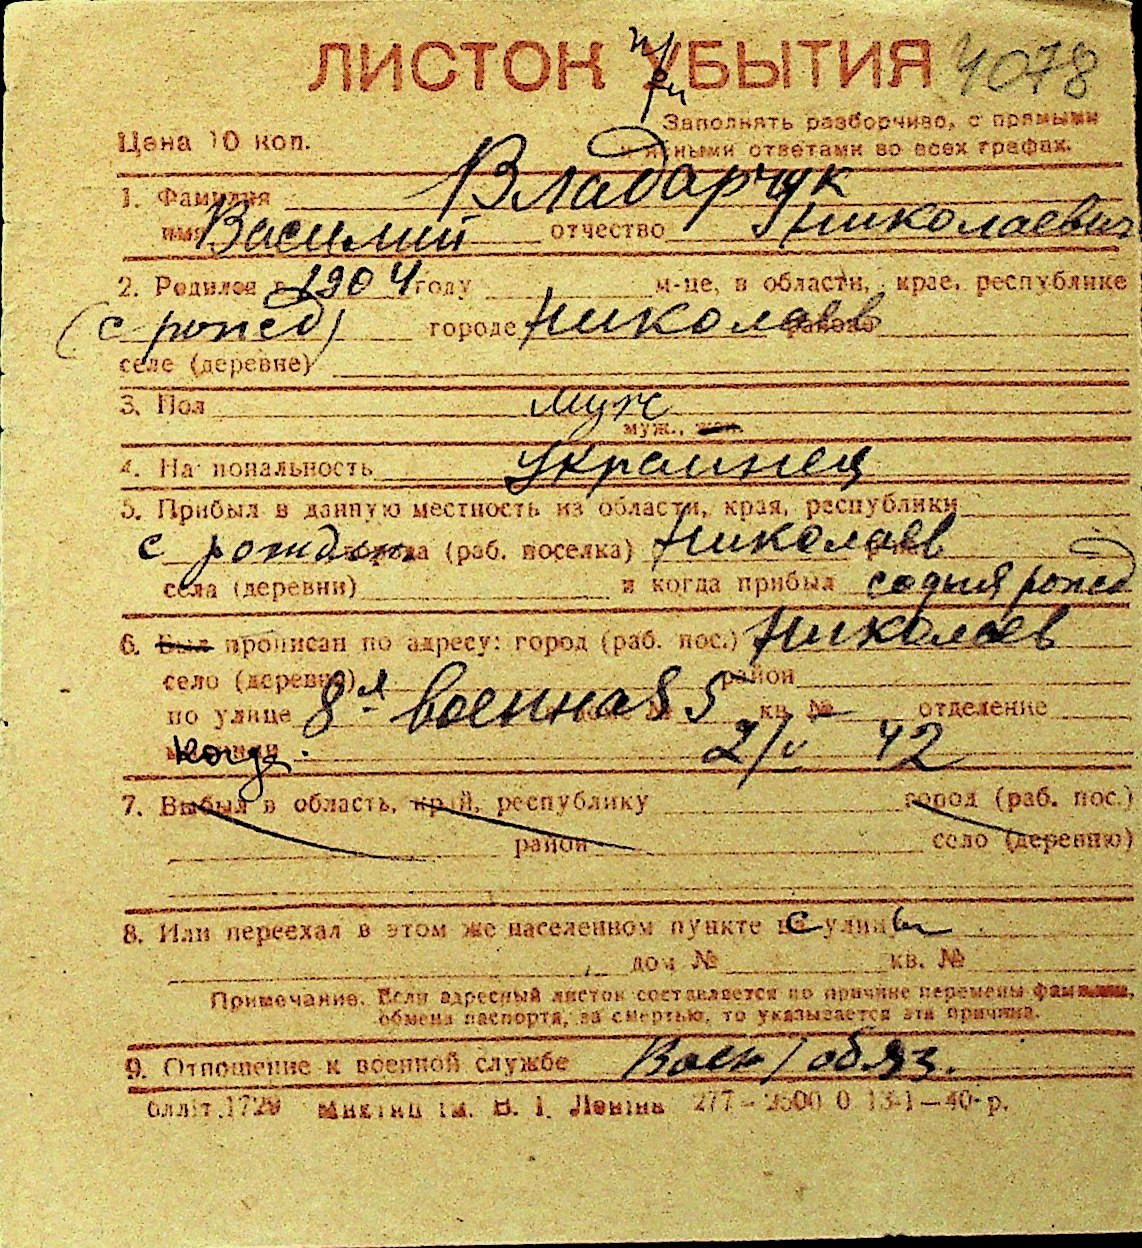 ЛИСТОК УБЫТИЯ 4078
при
Цена 10 коп.
Заполнять разборчиво, с прямыми
и ясными ответами во всех графах.
1. Фамилия Владарчук
имя Василий отчество Николаевич
2. Родился в 1904 году м-це, в области, крае, республике
(с рожд) городе Николаев районе
селе (деревне)
3. Пол муж
муж., жен.
4. Национальность украинец
5. Прибыл в данную местность из области, края, республики
с рожден города (раб. поселка) Николаев
села (деревни) и когда прибыл содня рожд
6. Был прописан по адресу: город (раб. пос.) Николаев
село (деревня) район
по улице 8я военная 85 кв. № отделение
Когда 2/V 42
7. Выбыл в область, край, республику город (раб. пос.)
район село (деревню)
8. Или переехал в этом же населенном пункте с улицы
дом № кв. №
Примечание. Если адресный листок составляется по причине перемены фамилии,
обмена паспорта, за смертью, то указывается эта причина.
9. Отношение к военной службе Воен/обяз.
облліт 1729 Миктип ім. В. І. Леніна 277–2500 0 13-1—40 р.